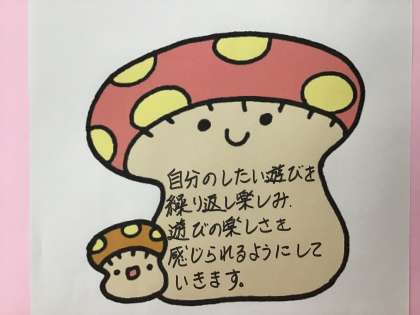 自分のしたい遊びを
繰り返し楽しみ、
遊びの楽しさを
感じられるようにして
いきます。